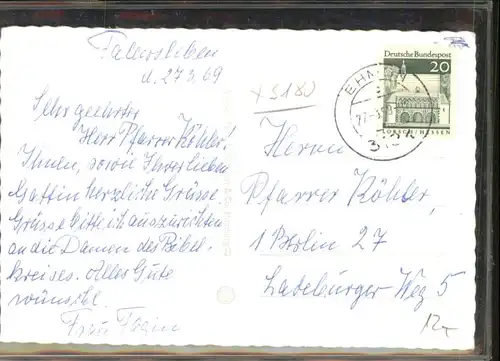 Fallersleben
d. 27.3.69
Sehr geehrter
Herr Pfarrer Köhler!
Ihnen, sowie Ihrer lieben
Gattin herzliche Grüsse.
Grüsse bitte ich auszurichten
an die Damen des Bibel-
kreises. Alles Gute
wünscht
Frau
Deutsche Bundespost
20
LORSCH/HESSEN
EHM
27.-3.
Herrn
Pfarrer Köhler,
1 Berlin 27
Weg 5